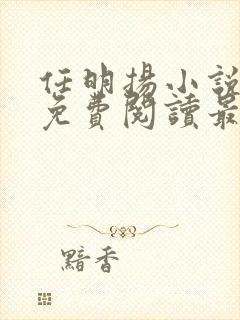 任明揚小說
免費閱讀最
黯香